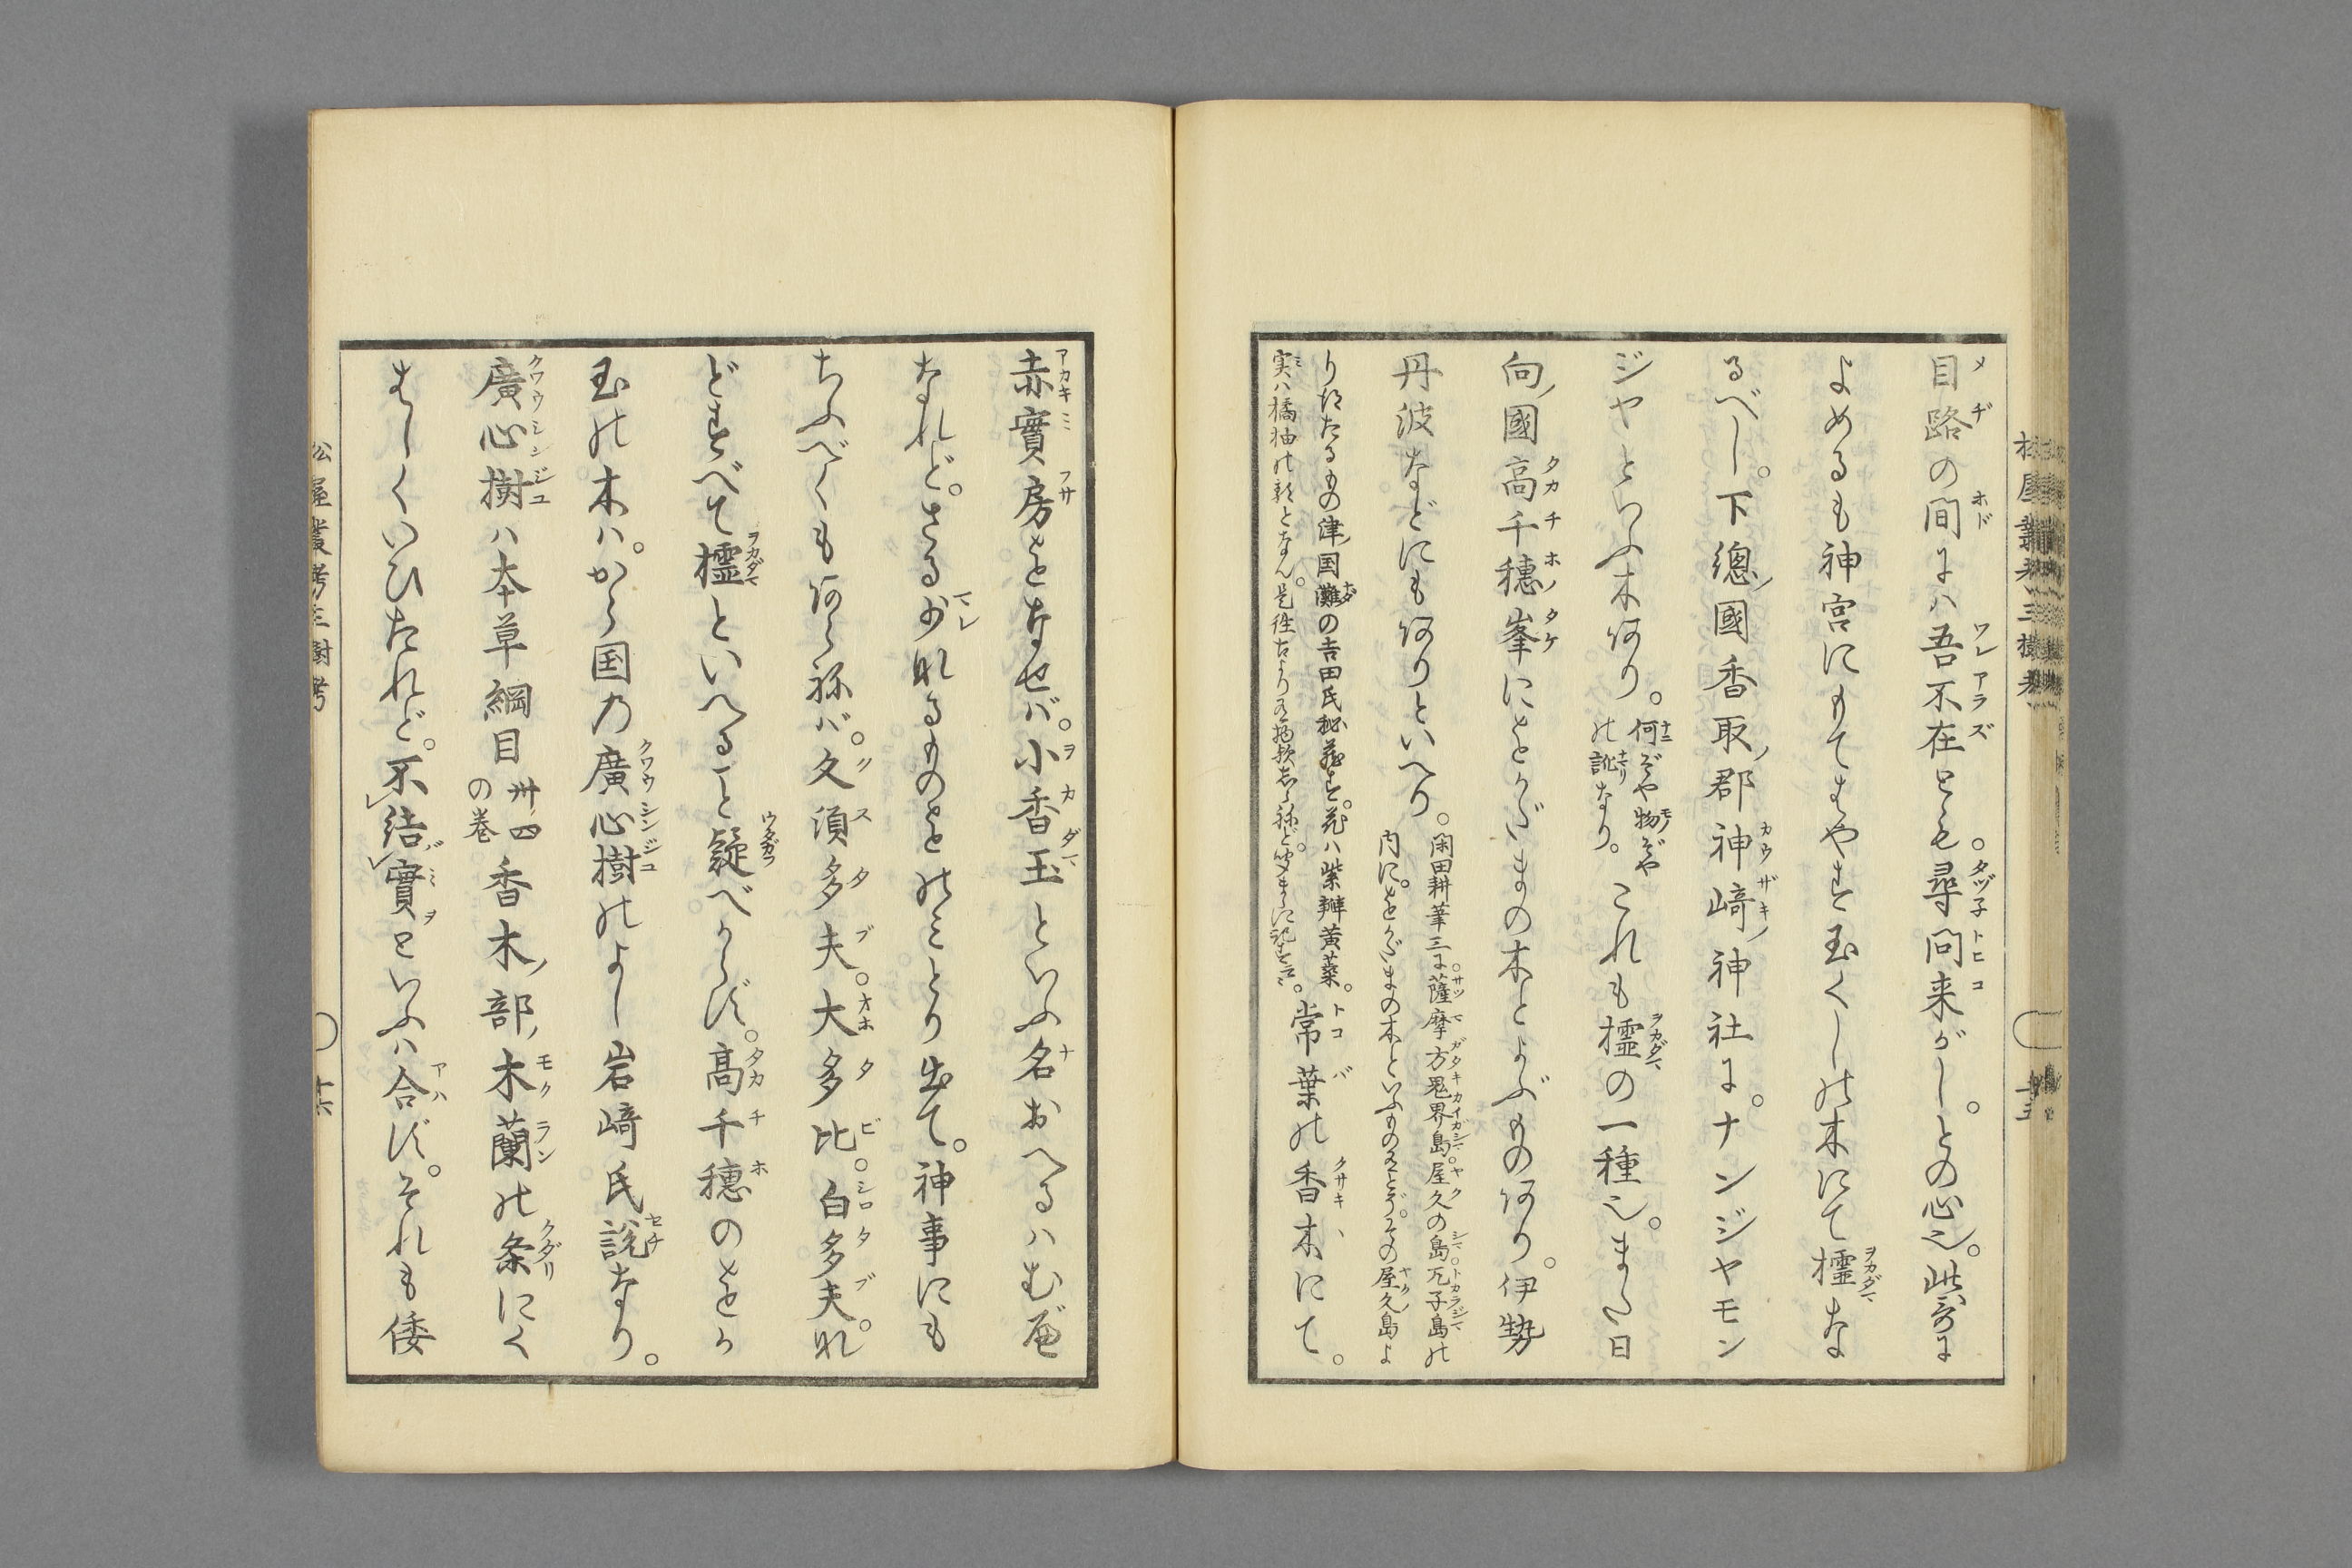 目路の間には吾不在とも。尋問来がし。との心也。此哥に
よめるも神宮にもてはやす玉くしの木にて櫺な
るべし。下總ノ國香取ノ郡神﨑ノ神社に。ナンジヤモン
ジヤといふ木あり。何ぞや物ぞや
の訛なり。これも櫺の一種也。また日
向ノ國高千穗峯にをがだまの木とよぶものあり。伊勢
丹波などにもありといへり。閑田耕筆三に薩摩方鬼界島屋久の島瓦子島の
内に。をがだまの木といふものありとぞ。その屋久島よ
りえたるもの津ノ国灘の吉田氏秘蔵す。花は紫瓣黄蘂。
実は橘柚の形となん。常葉の香木にて。
赤實房をなせば。小香玉といふ名おへるはむべ
なれど。さる少なるものをとのみとり出て。神事にも
ちふべくもあらねば。久須多夫。大多比。白多夫。な
どすべて櫺といへること疑べからず。高千穗のをが
玉の木は。から国の廣心樹のよし岩﨑氏説なり。
廣心樹は本草綱目卅四
の巻香木ノ部ノ木蘭の条にく
はしくいひたれど。不結實といふは合ず。それも倭
松屋叢考三樹考
十六